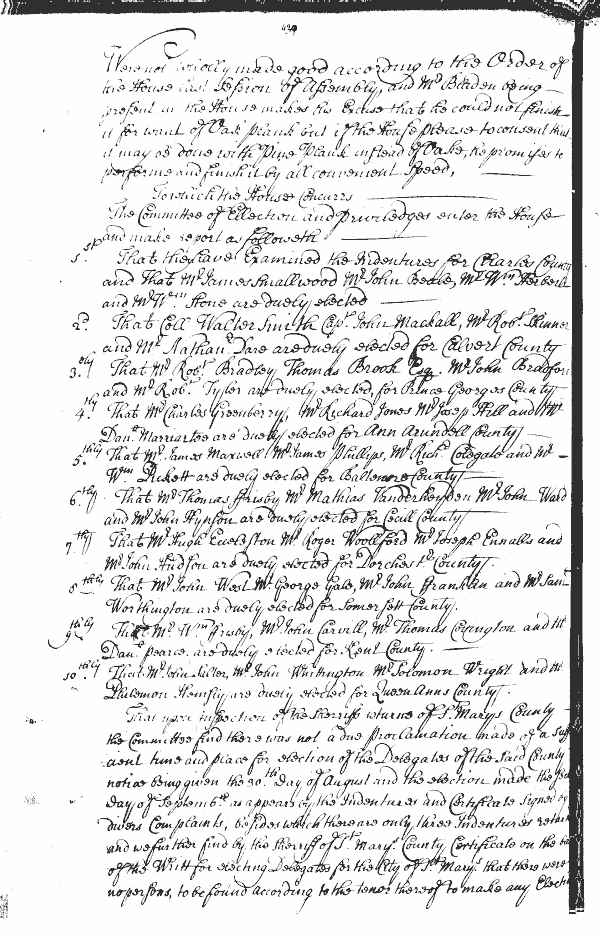 Were not [...] made good according to the Order of
the House last Session of Assembly, and Mr Bladen being
present in the House makes his Excuse that he could not finish
it for want of Oak plank but if the House please to consent that
it may be done with Pine Plank instead of Oake, he promises to
performe and finish it by all convenient Speed,
To which the House Concurrs
The Committee of Ellection and Priviledges enter the House
and make report as followeth
1st. That they have Examined the Indentures for Charles County
and That Mr James Smallwood Mr John Beale, Mr Wm Herbert
and Mr Wm Stone are duely elected
2d. That Coll Walter Smith Capt John Mackall, Mr Robt Skinner
and Mr Nathanl Dare are duely elected for Calvert County
3dly That Mr Robt Bradley Thomas Brook Esq. Mr John Bradford
and Mr Robt Tyler are duely elected, for Prince Georges County
4thly That Mr Charles Greenberry, Mr Richard Jones Mr Joseph Hill and Mr
Danl Marriartee are duely elected for Ann Arundell County
5thly That Mr James Maxwell Mr James Phillips, Mr Richd Colegate and Mr
Wm Pickett are duely elected for Baltemore County
6thly That Mr Thomas ffrisby Mr Mathias Vanderheyden Mr John Ward
and Mr John Hynson are duely elected for Cecill County
7thly That Mr Hugh Eccleston Mr Roger Woollford Mr Joseph Ennalls and
Mr John Hudson are duely elected for Dorchestr County.
8thly That Mr John West Mr George Gale, Mr John ffranklin and Mr Saml
Worthington are duely elected for Somersett County.
9thly That Mr Wm ffrisby, Mr John Carvill, Mr Thomas Covington and Mr
Danl Pearce are duely elected for Kent County.
10thly That Mr John Salter, Mr John Whitington Mr Solomon Wright and Mr
Philemon Hemsly are duely elected for Queen Anns County.
That upon inspection of the Sherriffs returne of St Marys County
the Committee find there was not a due proclamation made of a suf
cient time and place for election of the Delegates of the said County
notice being given the 30th day of August and the election made the
day of Septembr as appears by the Indentures and Certificate signed by
divers Complaints, besides which there are only three Indentures return
and we further find by the Sherriff of St Marys County Certificate on the ba
of the Writt for electing Delegates for the City of St Marys that there were
no persons, to be found according to the tenor thereof to make any Electi